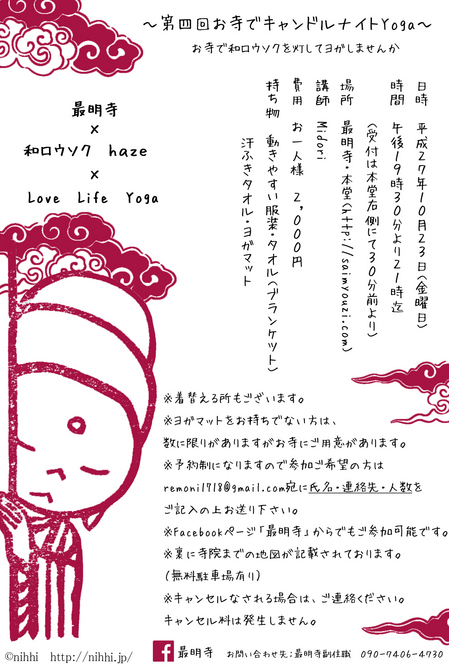 ～第四回お寺でキャンドルナイトYoga～
お寺で和ロウソクを灯してヨガしませんか
最明寺
×
和ロウソク haze
×
Love Life Yoga
日時 平成27年10月23日(金曜日)
時間 午後19時30分より21時迄
(受付は本堂右側にて30分前より)
場所 最明寺・本堂(http://saimyouzi.com)
講師 Midori
費用 お一人様 2,000円
持ち物 動きやすい服装・タオル(ブランケット)
汗ふきタオル・ヨガマット
※着替える所もございます。
※ヨガマットをお持ちでない方は、
数に限りがありますがお寺にご用意があります。
※予約制になりますので参加ご希望の方は
remoni1718@gmail.com宛に氏名・連絡先・人数を
ご記入の上お送り下さい。
※Facebookページ「最明寺」からでもご参加可能です。
※裏に寺院までの地図が記載されております。
(無料駐車場有り)
※キャンセルなされる場合は、ご連絡ください。
キャンセル料は発生しません。
©nihhi http://nihhi.jp/
f 最明寺 お問い合わせ先:最明寺副住職 090-7406-4730